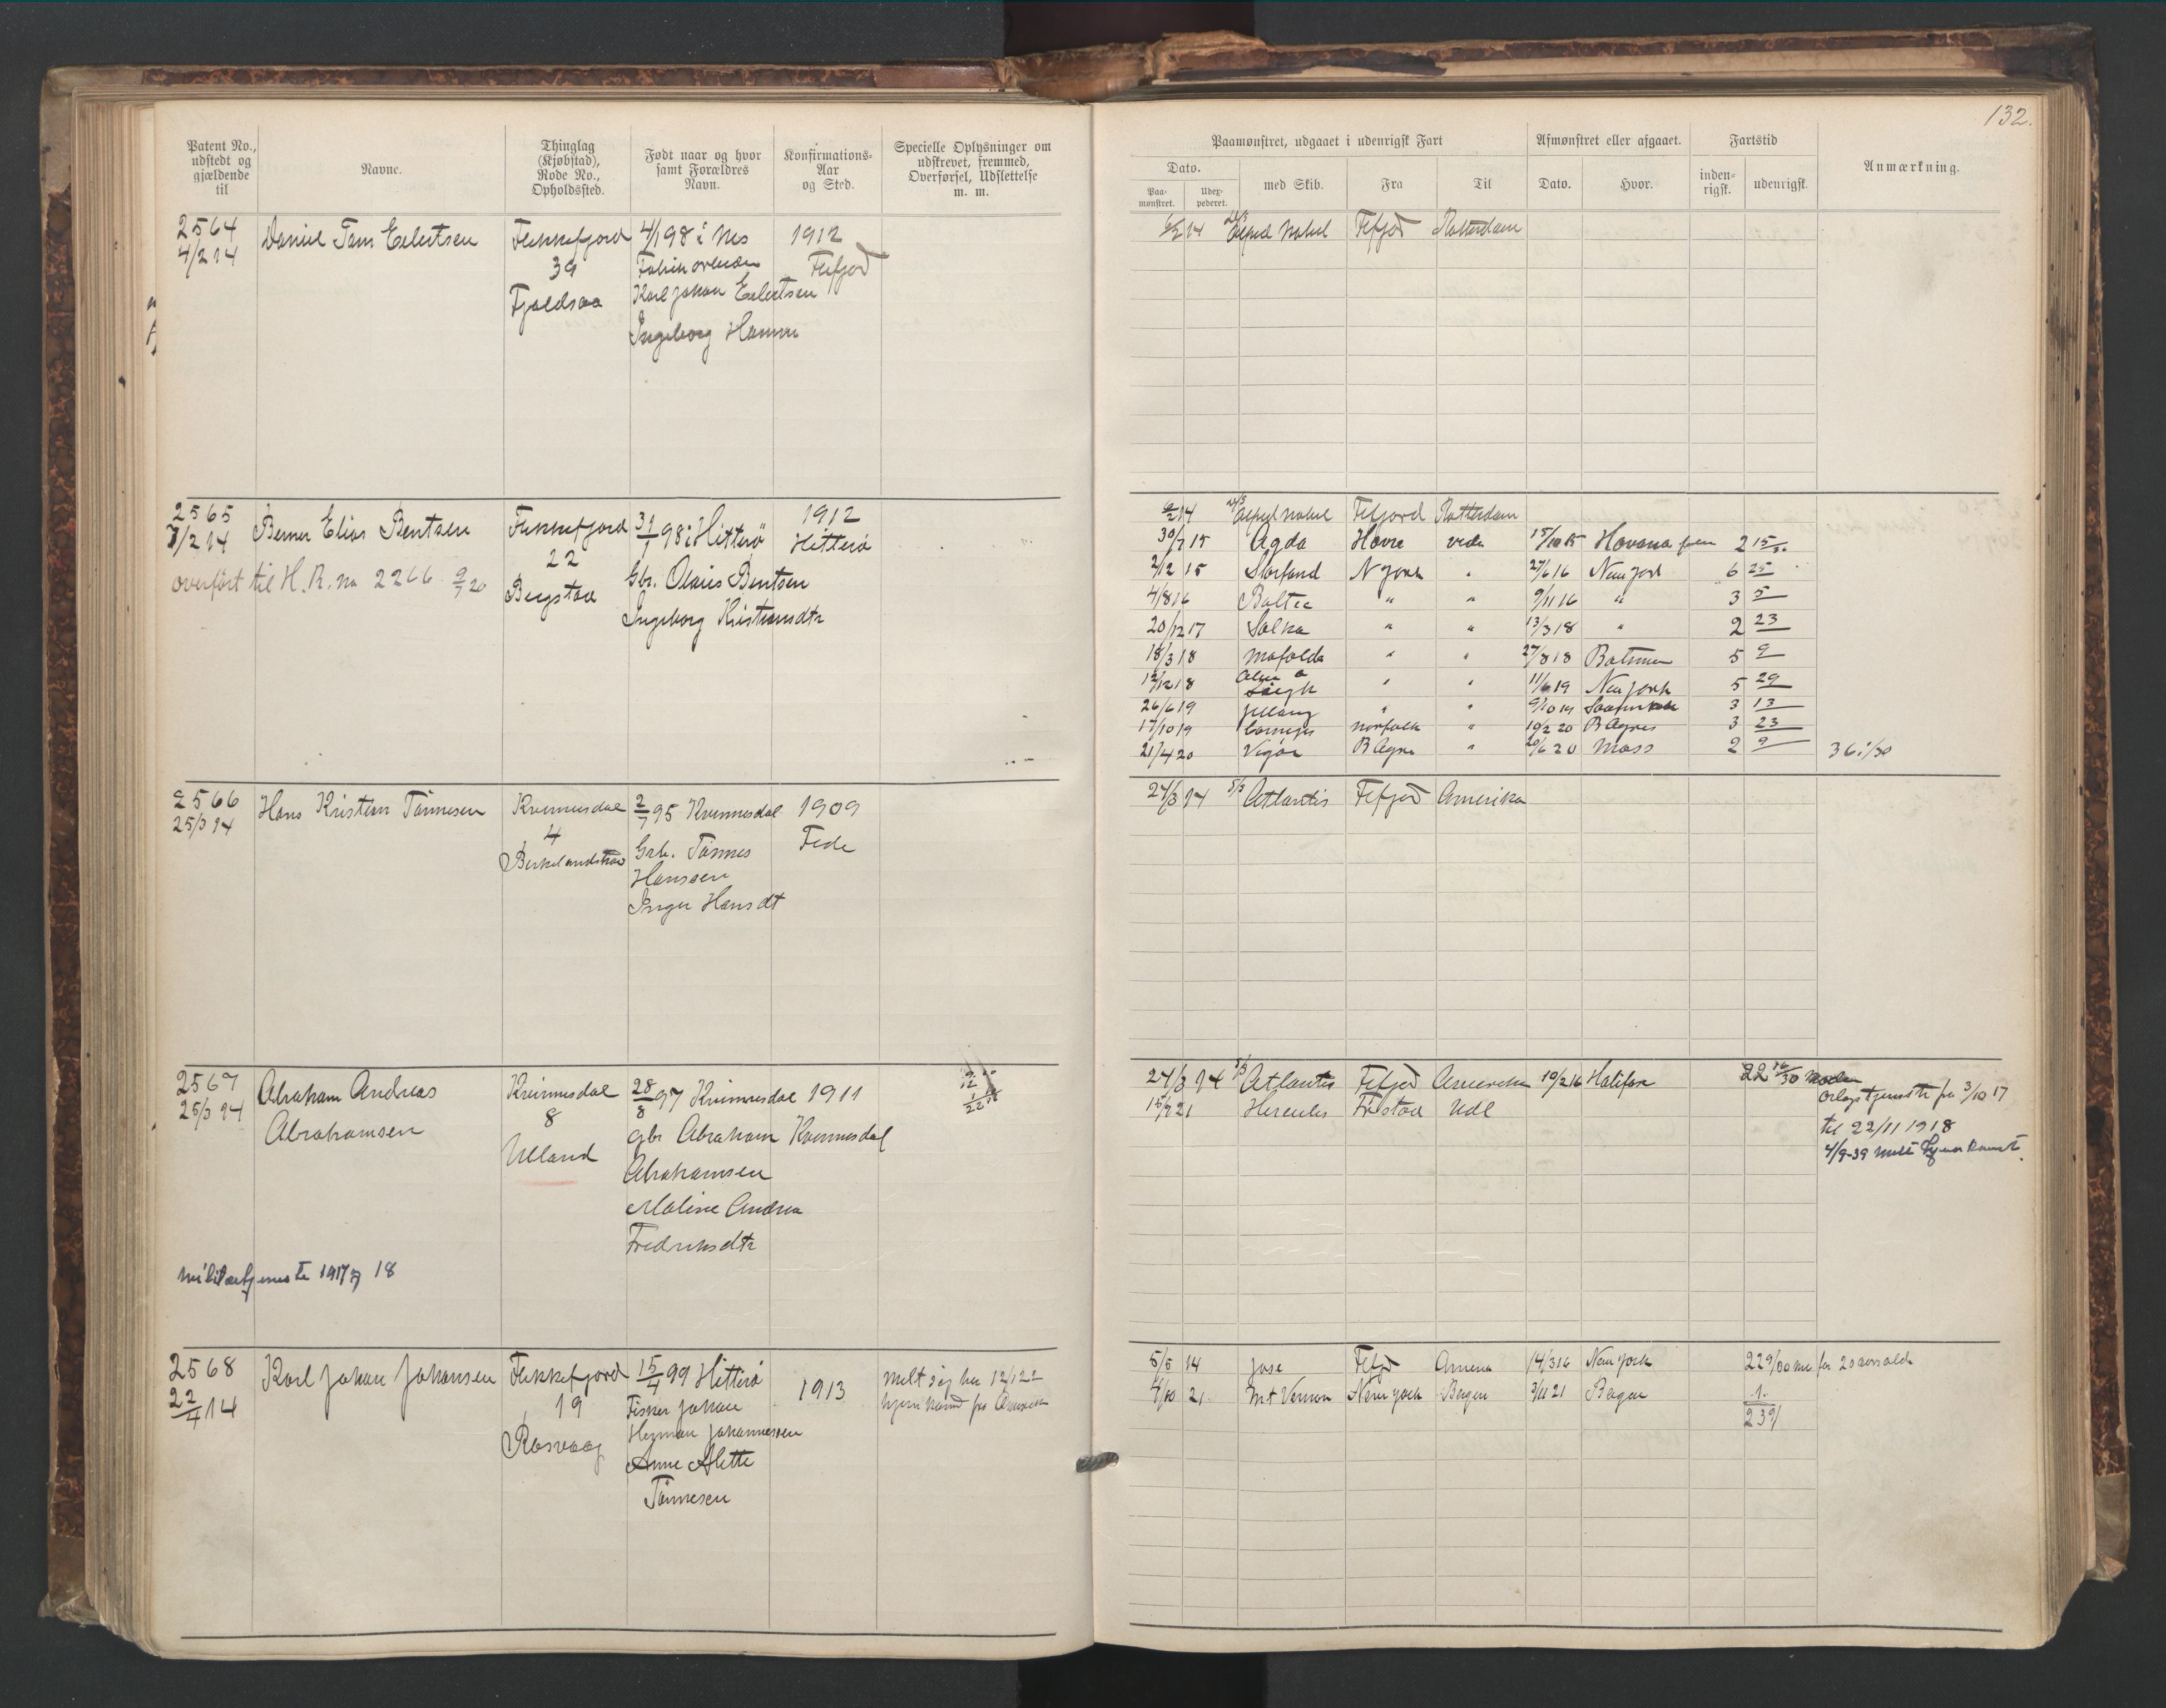 132.
Patent No., udstedt og gjældende til
Navne.
Thinglag (Kjøbstad), Rode No., Opholdssted.
Født naar og hvor samt Forældres Navn.
Konfirmations- Aar og Sted.
Specielle Oplysninger om udskrevet, fremmed, Overførsel, Udslettelse m. m.
Paamønstret, udgaaet i udenrigsk Fart
Afmønstret eller afgaaet.
Fartstid
Anmærkning.
Dato.
Paa- mønstret.
Udex- pederet.
med Skib.
Fra
Til
Dato.
Hvor.
inden- rigsk.
udenrigsk.
2564
4/2 14
Daniel Tom Eilertsen
Flekkefjord
39
Fjeldsaa
4/1 98 i Nes
Fabrikarbeider
Karl Johan Eilertsen
Ingeborg Hanne
1912
Flefjord
6/2 14 Alfred Nobel Flefjord Rotterdam
2565
7/2 14
Berner Elias Bentsen
overført til H.R. no 2266 9/7 20
Flekkefjord
22
Begstad
31/1 98 i Hitterø
Gbr. Olaus Bentsen
Ingeborg Kristiansdtr
1912
Hitterø
6/2 14 Alfred Nobel Flefjord Rotterdam
30/7 15 Agda Havre vida 15/10 15 Havana 2 15
2/12 15 Storfond N York " 27/6 16 New York 6 25
4/8 16 Baltic " " 9/11 16 " 3 5
20/12 17 Solka " " 13/3 18 " 2 23
18/3 18 Mafalda " " 27/8 18 5 9
12/12 18 " " 11/6 19 New York 5 29
26/6 19 Jelling " " 9/10 19 3 13
17/10 19 Norfolk " 10/2 20 B Ayres 3 23
21/4 20 Vigør B Ayres " 20/6 20 Moss 2 9
36 1/30
2566
25/3 14
Hans Kristian Tønnesen
Kvinnesdal
4
Birkelandstrø
2/7 95 Kvinnesdal
Grb. Tønnes
Hanssen
Inger Hansdt
1909
Fede
24/3 14 5/3 Atlantis Flefjord Amerika
2567
25/3 14
Abraham Andreas
Abrahamsen
Militærtjeneste 1917 og 18
Kvinnesdal
8
Ulland
28/8 97 Kvinnesdal
gbr Abraham
Abrahamsen
Maline Andrea
Fredriksdtr
1911
Kvinnesdal
24/3 14 5/3 Atlantis Flefjord Amerika 10/2 16 Halifax 22 16/30
15/7 21 Hercules Fr.stad Udl
Orlogstjeneste fra 3/10 17
til 22/11 1918
4/9-39 meldt hjemkomst.
2568
22/4 14
Karl Johan Johansen
Flekkefjord
19
Rasvaag
15/4 99 Hitterø
Fisker Johan
Herman Johannessen
Anne Alette
Tønnesen
1913
Meldt sig her 12/1 22
hjemkommet fra Amerika
5/5 14 Jose Flefjd America 14/3 16 New York 22 9/30
4/10 21 Mt Vernon New York Bergen 3/11 21 Bergen 1.
23 9/